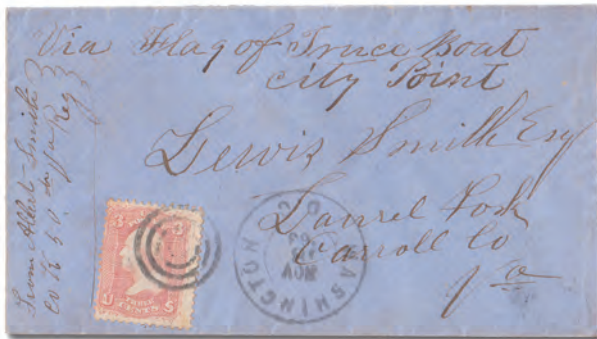 Via Flag of Truce Boat
City Point
Lewis Smith Esq
Laurel Fork
Carroll Co
Va
From Albert Smith
Co K 50 Reg
WASHINGTON D C
NOV
63
3 3
U S
THREE CENTS